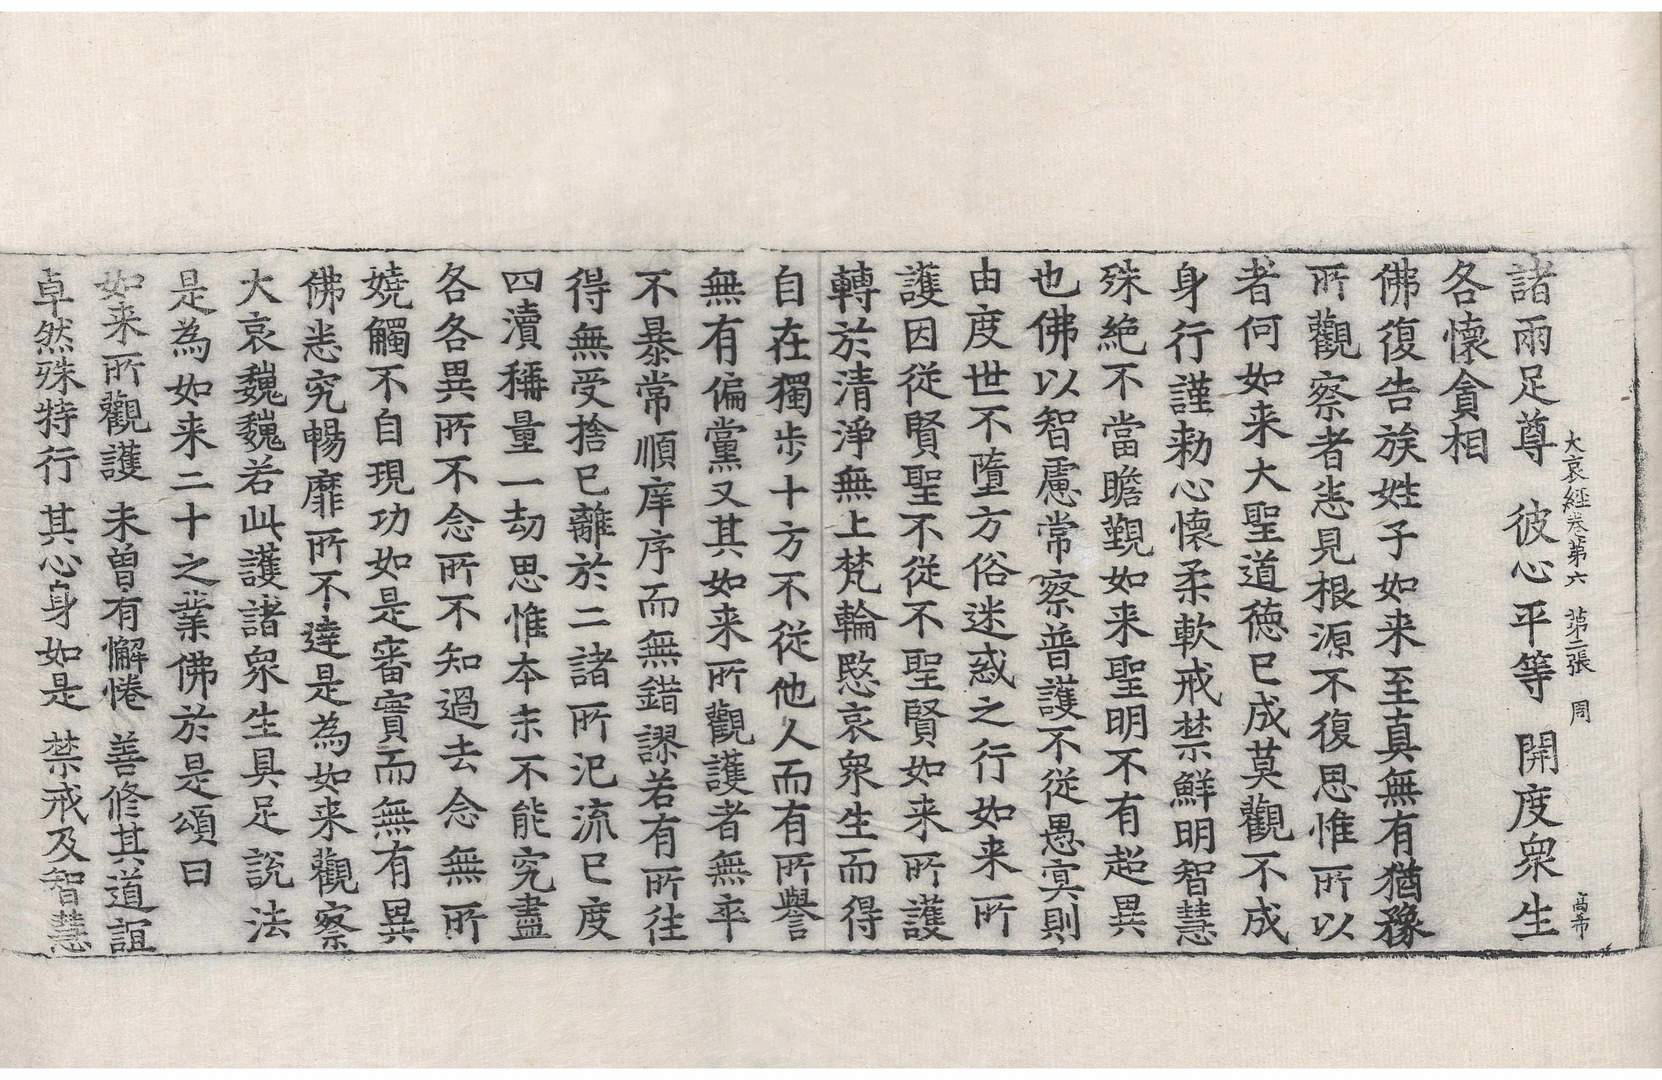 大哀經卷第六 第二張 周 高希
諸兩足尊 彼心平等 開度衆生
各懷貪相
佛復告族姓子如来至真無有猶豫
所觀察者悉見根源不復思惟所以
者何如来大聖道德已成莫觀不成
身行謹勑心懷柔軟戒禁鮮明智慧
殊絶不當瞻覲如来聖明不有超異
也佛以智慮常察普護不從愚冥則
由度世不墮方俗迷惑之行如来所
護因從賢聖不從不聖賢如来所護
轉於清淨無上梵輪愍哀衆生而得
自在獨步十方不從他人而有所譽
無有偏黨又其如来所觀護者無卒
不暴常順庠序而無錯謬若有所往
得無受捨已離於二諸所汜流已度
四瀆稱量一劫思惟本末不能究盡
各各異所不念所不知過去念無所
嬈觸不自現功如是審實而無有異
佛悉究暢靡所不達是為如来觀察
大哀魏魏若此護諸衆生具足說法
是為如来二十之業佛於是頌曰
如来所觀護 未曾有懈惓 善修其道誼
卓然殊特行 其心身如是 禁戒及智慧